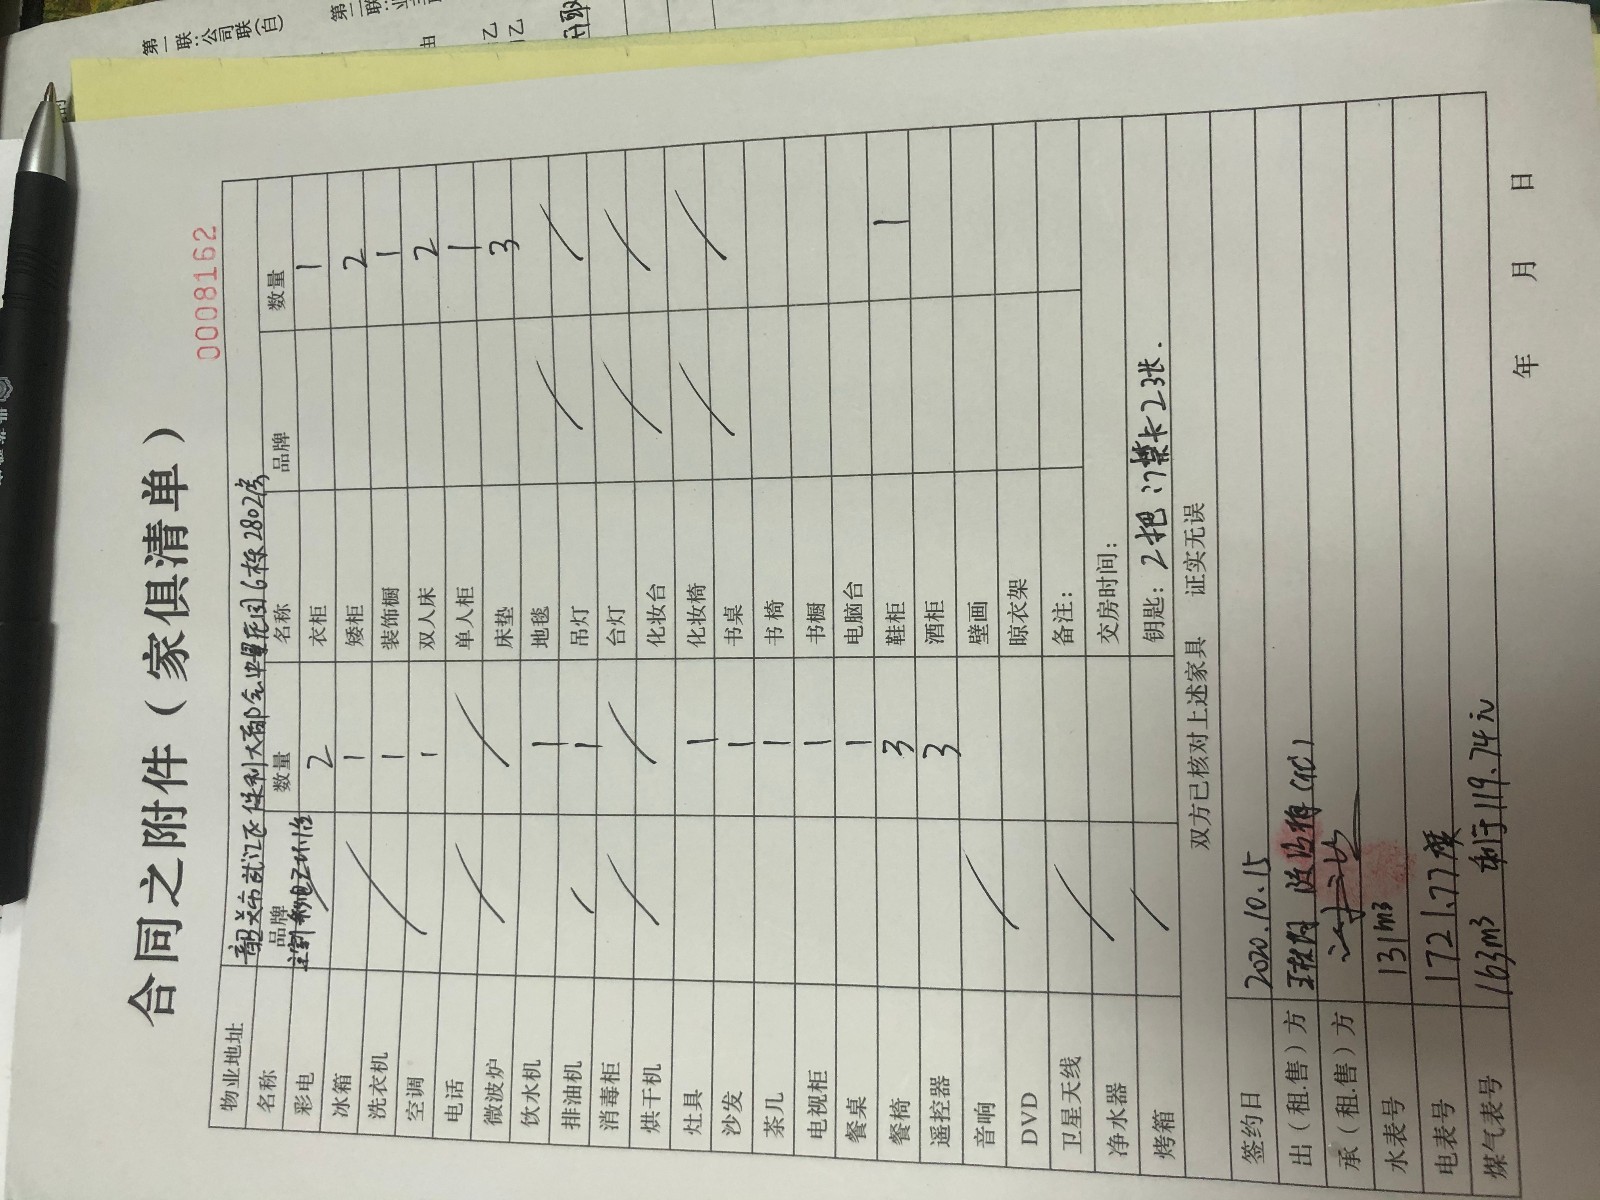 第一联:公司联(白)
合同之附件（家俱清单）
0008162
物业地址 韶关市武江区保利大都会 花园6栋2802房
名称 品牌 数量 名称 品牌 数量
彩电 2 衣柜 1
冰箱 1 矮柜 2
洗衣机 1 装饰橱 1
空调 1 双人床 2
电话 单人柜 1
微波炉 床垫 3
饮水机 1 地毯
排油机 1 吊灯
消毒柜 台灯
烘干机 化妆台
灶具 1 化妆椅
沙发 1 书桌
茶几 1 书椅
电视柜 1 书橱
餐桌 1 电脑台
餐椅 3 鞋柜 1
遥控器 3 酒柜
音响 壁画
DVD 晾衣架
卫星天线 备注：
净水器 交房时间：
烤箱 钥匙：2把 门禁卡2张.
双方已核对上述家具 证实无误
签约日 2020.10.15
出（租.售）方
承（租.售）方
水表号 131m³
电表号 1721.77度
煤气表号 163m³ 剩于119.74元
年 月 日